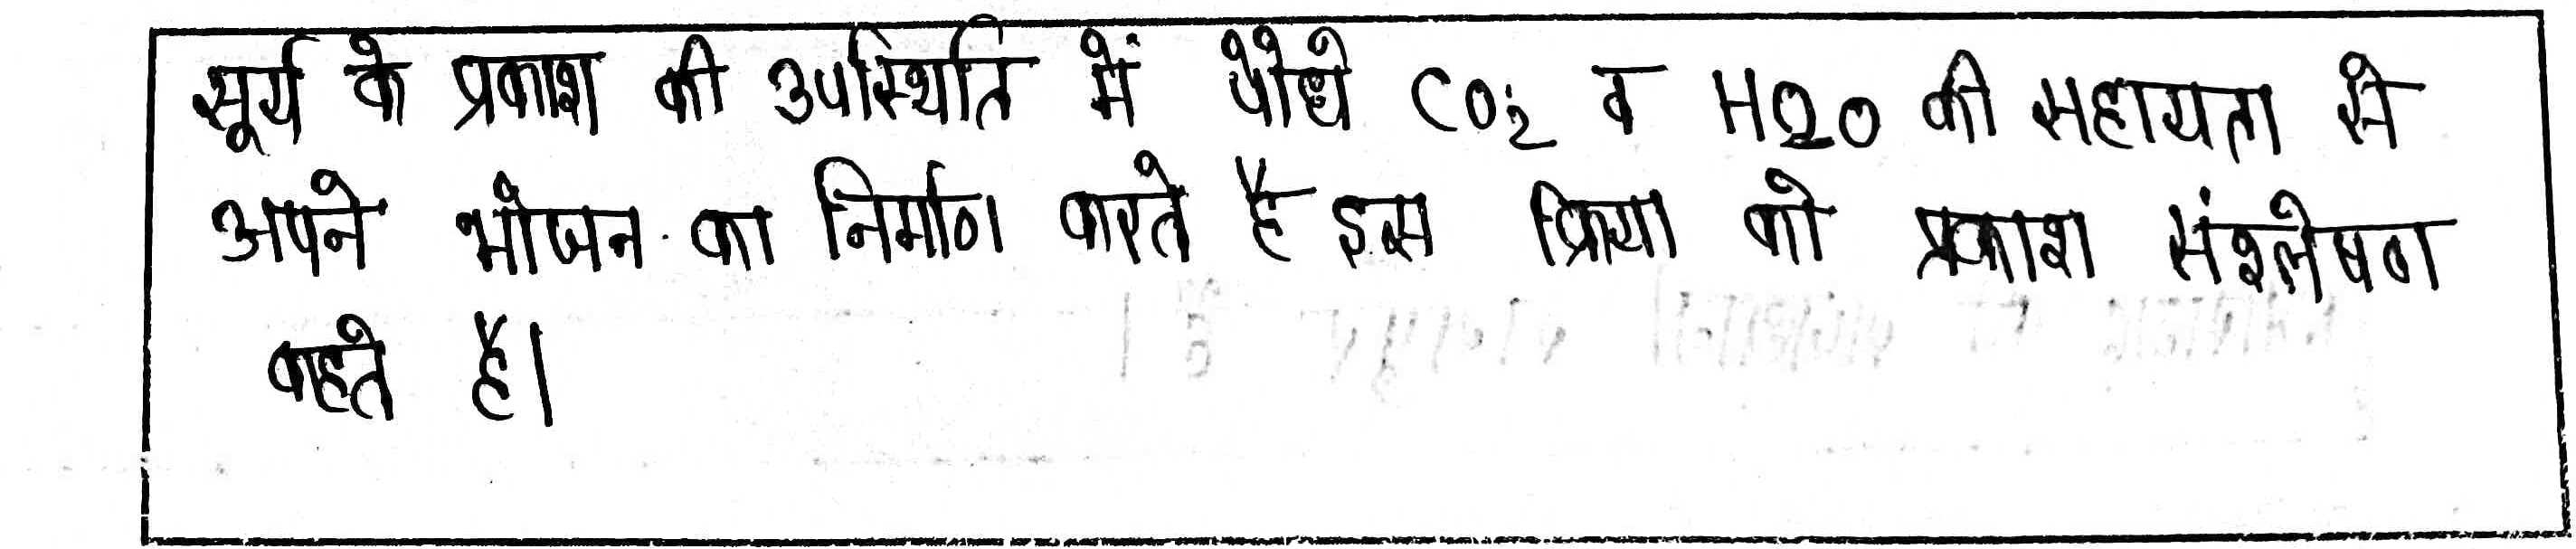 सूर्य के प्रकाश की उपस्थिति में पौधे CO2 व H2O की सहायता से
अपने भोजन का निर्माण करते है इस क्रिया को प्रकाश संश्लेषण
कहते है।